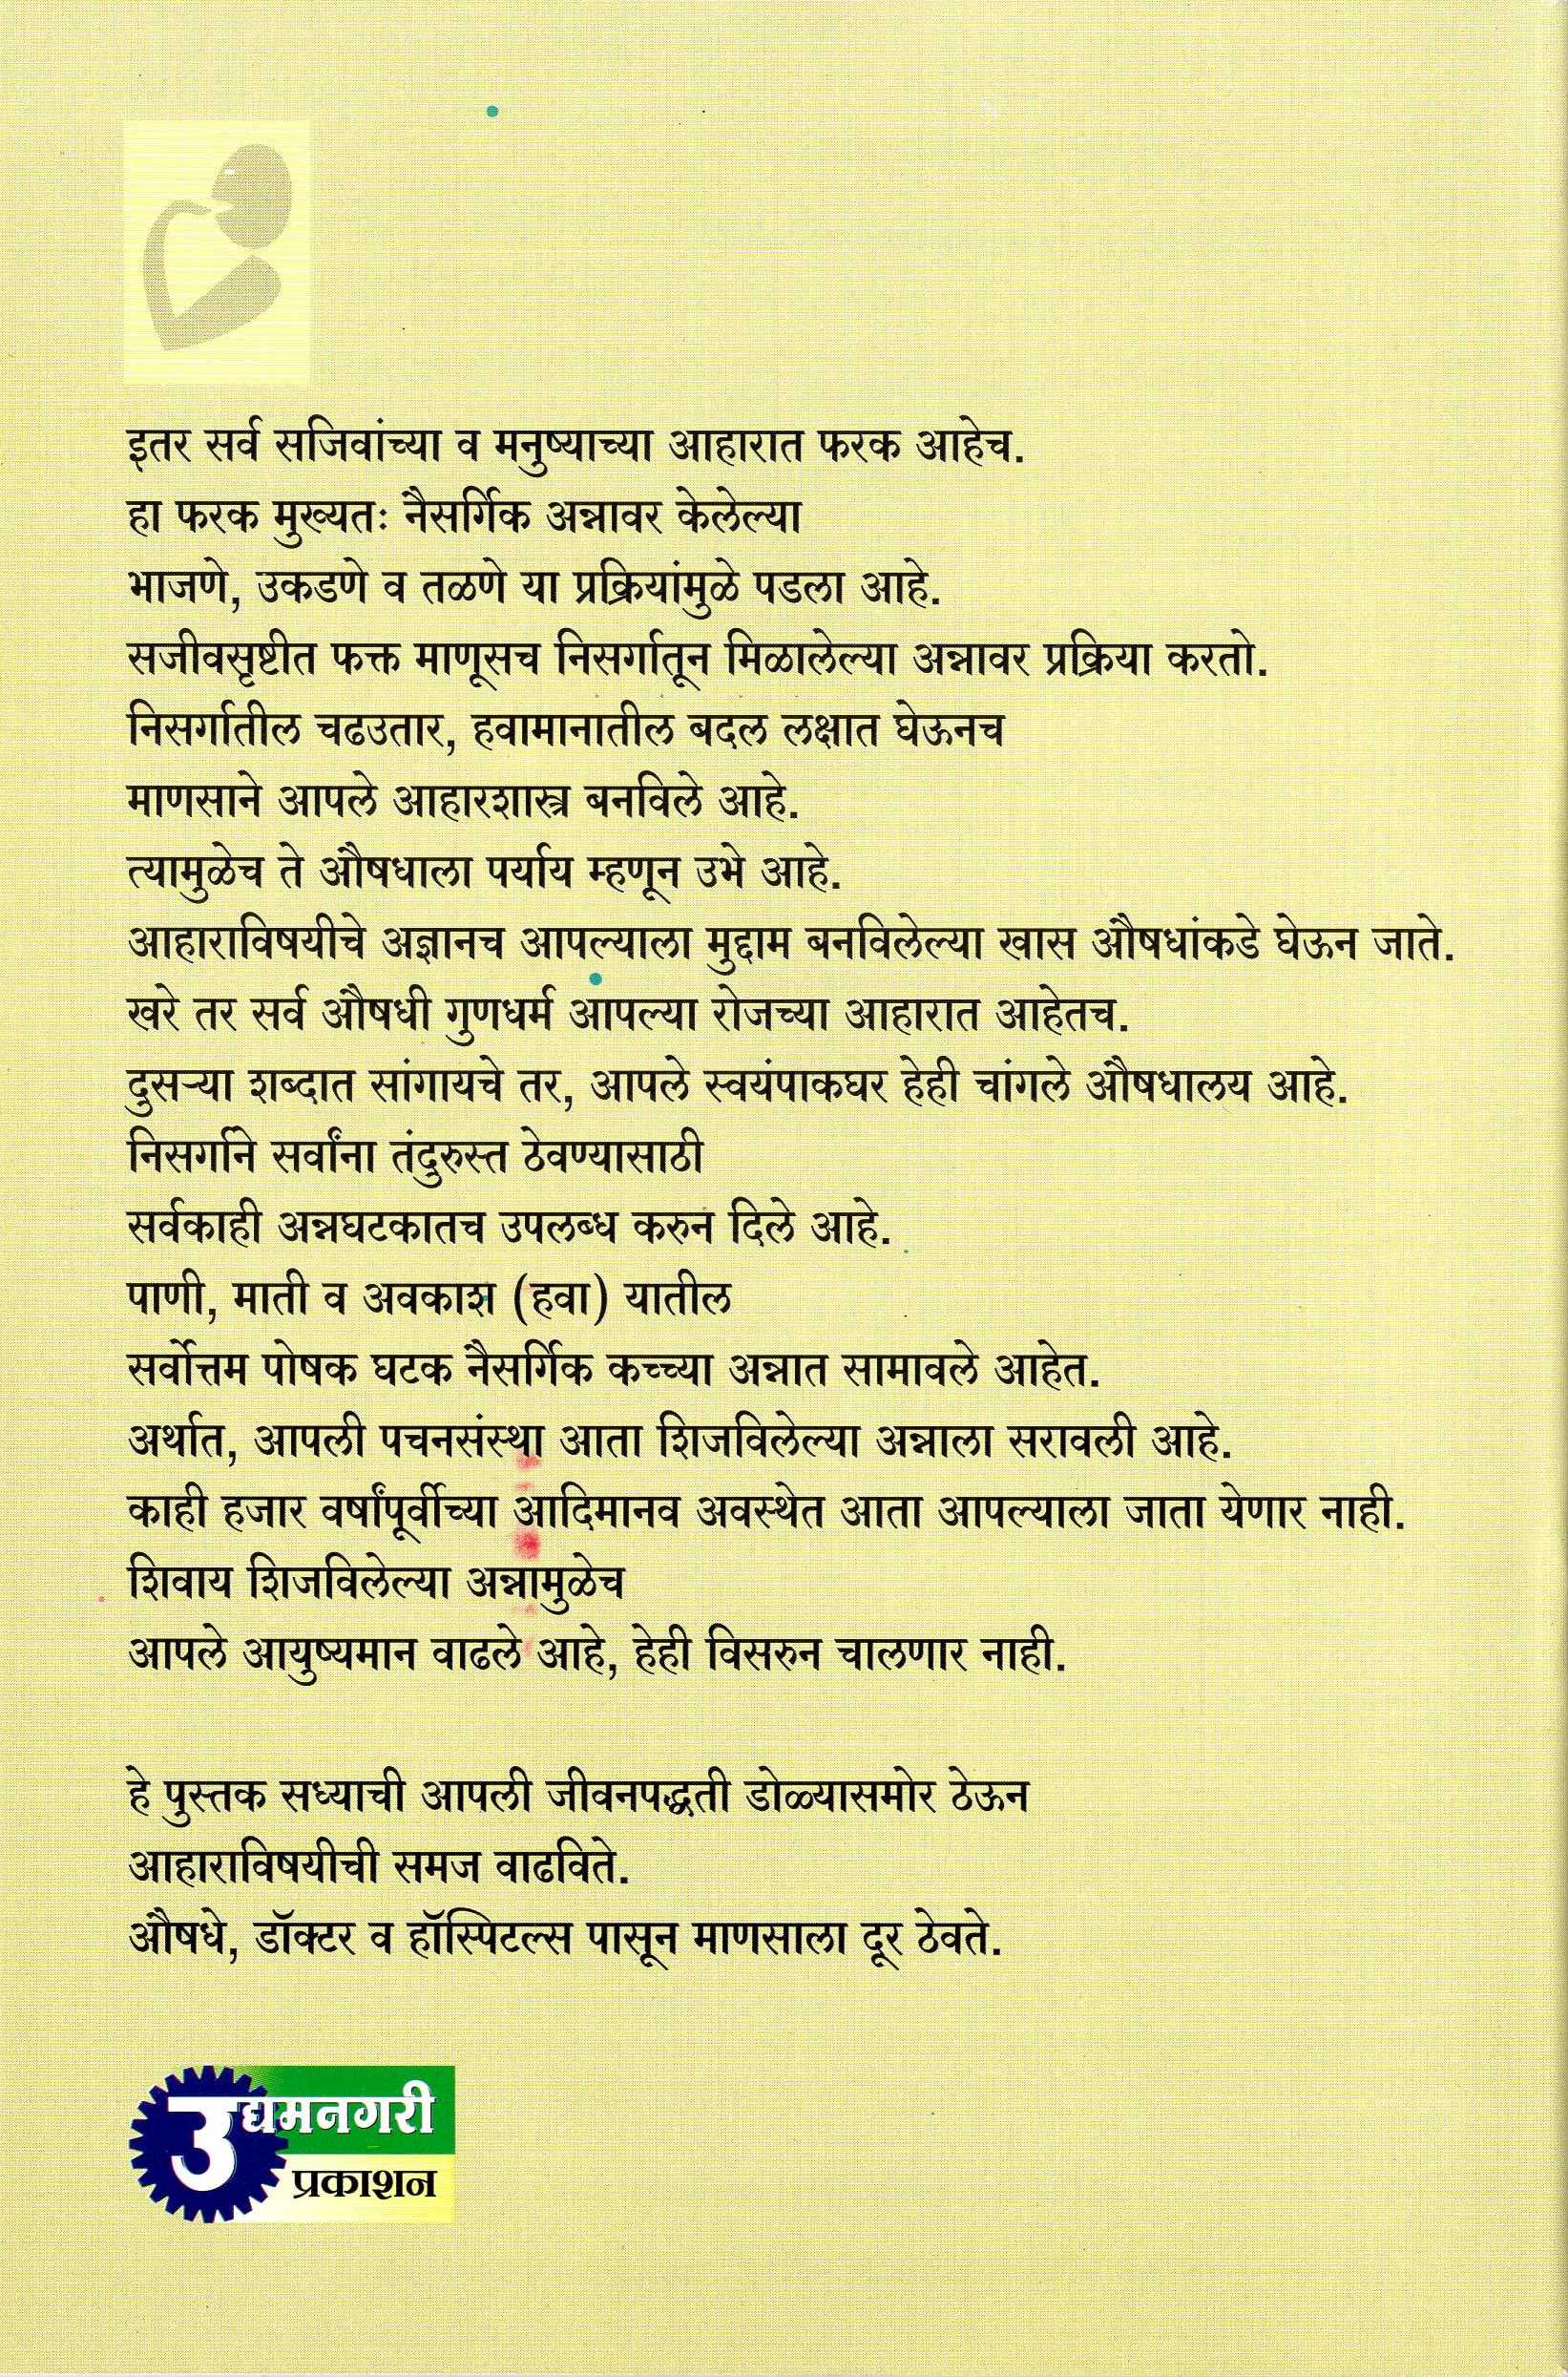 इतर सर्व सजिवांच्या व मनुष्याच्या आहारात फरक आहेच.
हा फरक मुख्यतः नैसर्गिक अन्नावर केलेल्या
भाजणे, उकडणे व तळणे या प्रक्रियांमुळे पडला आहे.
सजीवसृष्टीत फक्त माणूसच निसर्गातून मिळालेल्या अन्नावर प्रक्रिया करतो.
निसर्गातील चढउतार, हवामानातील बदल लक्षात घेऊनच
माणसाने आपले आहारशास्त्र बनविले आहे.
त्यामुळेच ते औषधाला पर्याय म्हणून उभे आहे.
आहाराविषयीचे अज्ञानच आपल्याला मुद्दाम बनविलेल्या खास औषधांकडे घेऊन जाते.
खरे तर सर्व औषधी गुणधर्म आपल्या रोजच्या आहारात आहेतच.
दुसऱ्या शब्दात सांगायचे तर, आपले स्वयंपाकघर हेही चांगले औषधालय आहे.
निसर्गाने सर्वांना तंदुरुस्त ठेवण्यासाठी
सर्वकाही अन्नघटकातच उपलब्ध करुन दिले आहे.
पाणी, माती व अवकाश (हवा) यातील
सर्वोत्तम पोषक घटक नैसर्गिक कच्च्या अन्नात सामावले आहेत.
अर्थात, आपली पचनसंस्था आता शिजविलेल्या अन्नाला सरावली आहे.
काही हजार वर्षांपूर्वीच्या आदिमानव अवस्थेत आता आपल्याला जाता येणार नाही.
शिवाय शिजविलेल्या अन्नामुळेच
आपले आयुष्यमान वाढले आहे, हेही विसरुन चालणार नाही.
हे पुस्तक सध्याची आपली जीवनपद्धती डोळ्यासमोर ठेऊन
आहाराविषयीची समज वाढविते.
औषधे, डॉक्टर व हॉस्पिटल्स पासून माणसाला दूर ठेवते.
उद्यमनगरी
प्रकाशन